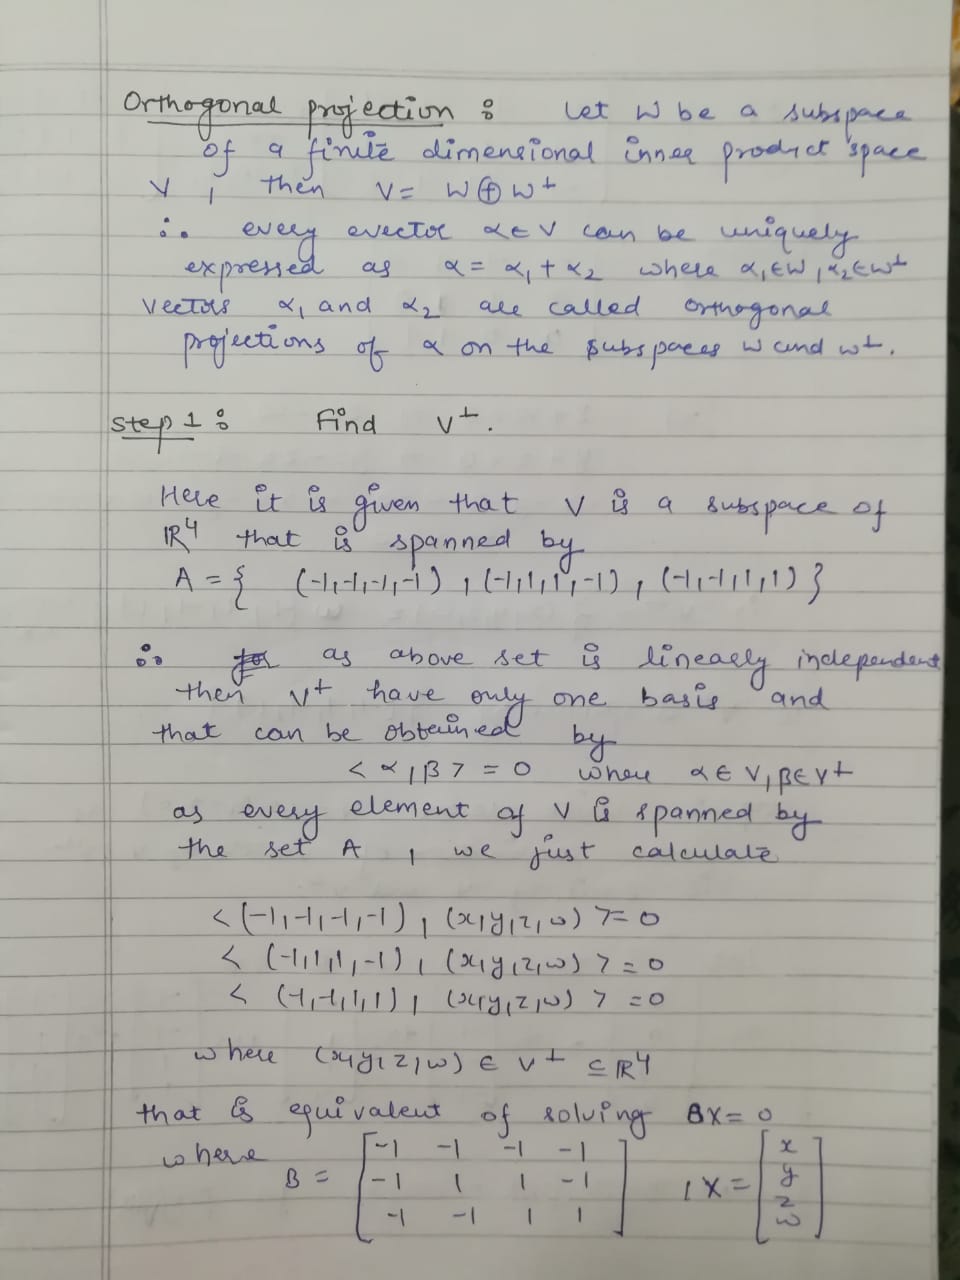 Orthogonal projection : Let W be a subspace
of a finite dimensional inner product space
V , then V = W ⊕ W⊥
∴ every evector α ∈ V can be uniquely
expressed as α = α₁ + α₂ where α₁ ∈ W , α₂ ∈ W⊥
vectors α₁ and α₂ are called orthogonal
projections of α on the subspaces W and W⊥.
Step 1 : Find V⊥.
Here it is given that V is a subspace of
ℝ⁴ that is spanned by
A = { (-1,-1,-1,-1) , (-1,1,1,-1) , (-1,-1,1,1) }
∴ as above set is linearly independent
then V⊥ have only one basis and
that can be obtained by
< α , β > = 0 where α ∈ V , β ∈ V⊥
as every element of V is spanned by
the set A , we just calculate
< (-1,-1,-1,-1) , (x,y,z,w) > = 0
< (-1,1,1,-1) , (x,y,z,w) > = 0
< (-1,-1,1,1) , (x,y,z,w) > = 0
where (x,y,z,w) ∈ V⊥ ⊆ ℝ⁴
that is equivalent of solving BX = 0
where B = [ -1 -1 -1 -1
-1 1 1 -1
-1 -1 1 1 ] , X = [ x
y
z
w ]